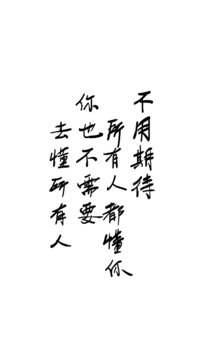 不用期待
所有人都懂你
你也不需要
去懂所有人